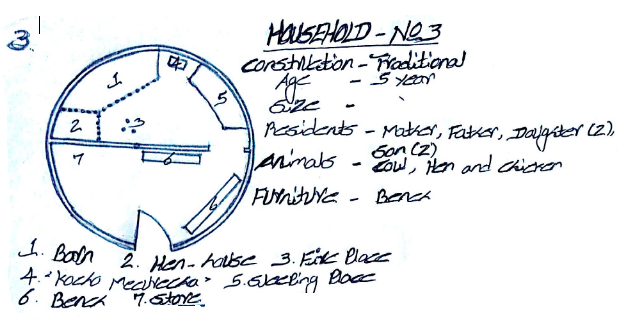 3.
HOUSEHOLD - No. 3
Construction - Traditional
Age - 5 year
Size -
Residents - Mother, Father, Daughter (2),
Son (2)
Animals - Cow, Hen and chicken
Furniture - Bench
1
4
5
2
3
7
6
6
1. Barn 2. Hen-house 3. Fire Place
4. "Kocho 5. Sleeping Place
6. Bench 7. Store.